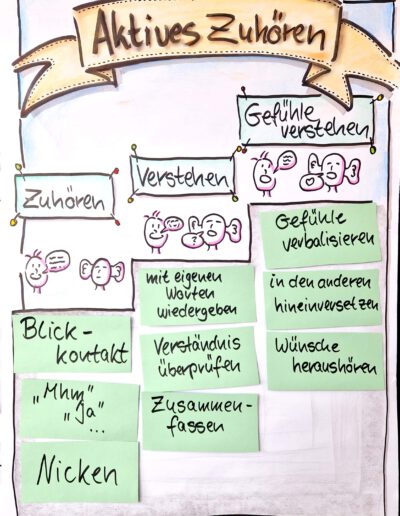 Aktives Zuhören
Zuhören
Blick-
kontakt
„Mhm"
„Ja"
...
Nicken
Verstehen
mit eigenen
Worten
wiedergeben
Verständnis
überprüfen
Zusammen-
fassen
Gefühle
verstehen
Gefühle
verbalisieren
in den anderen
hineinversetzen
Wünsche
heraushören